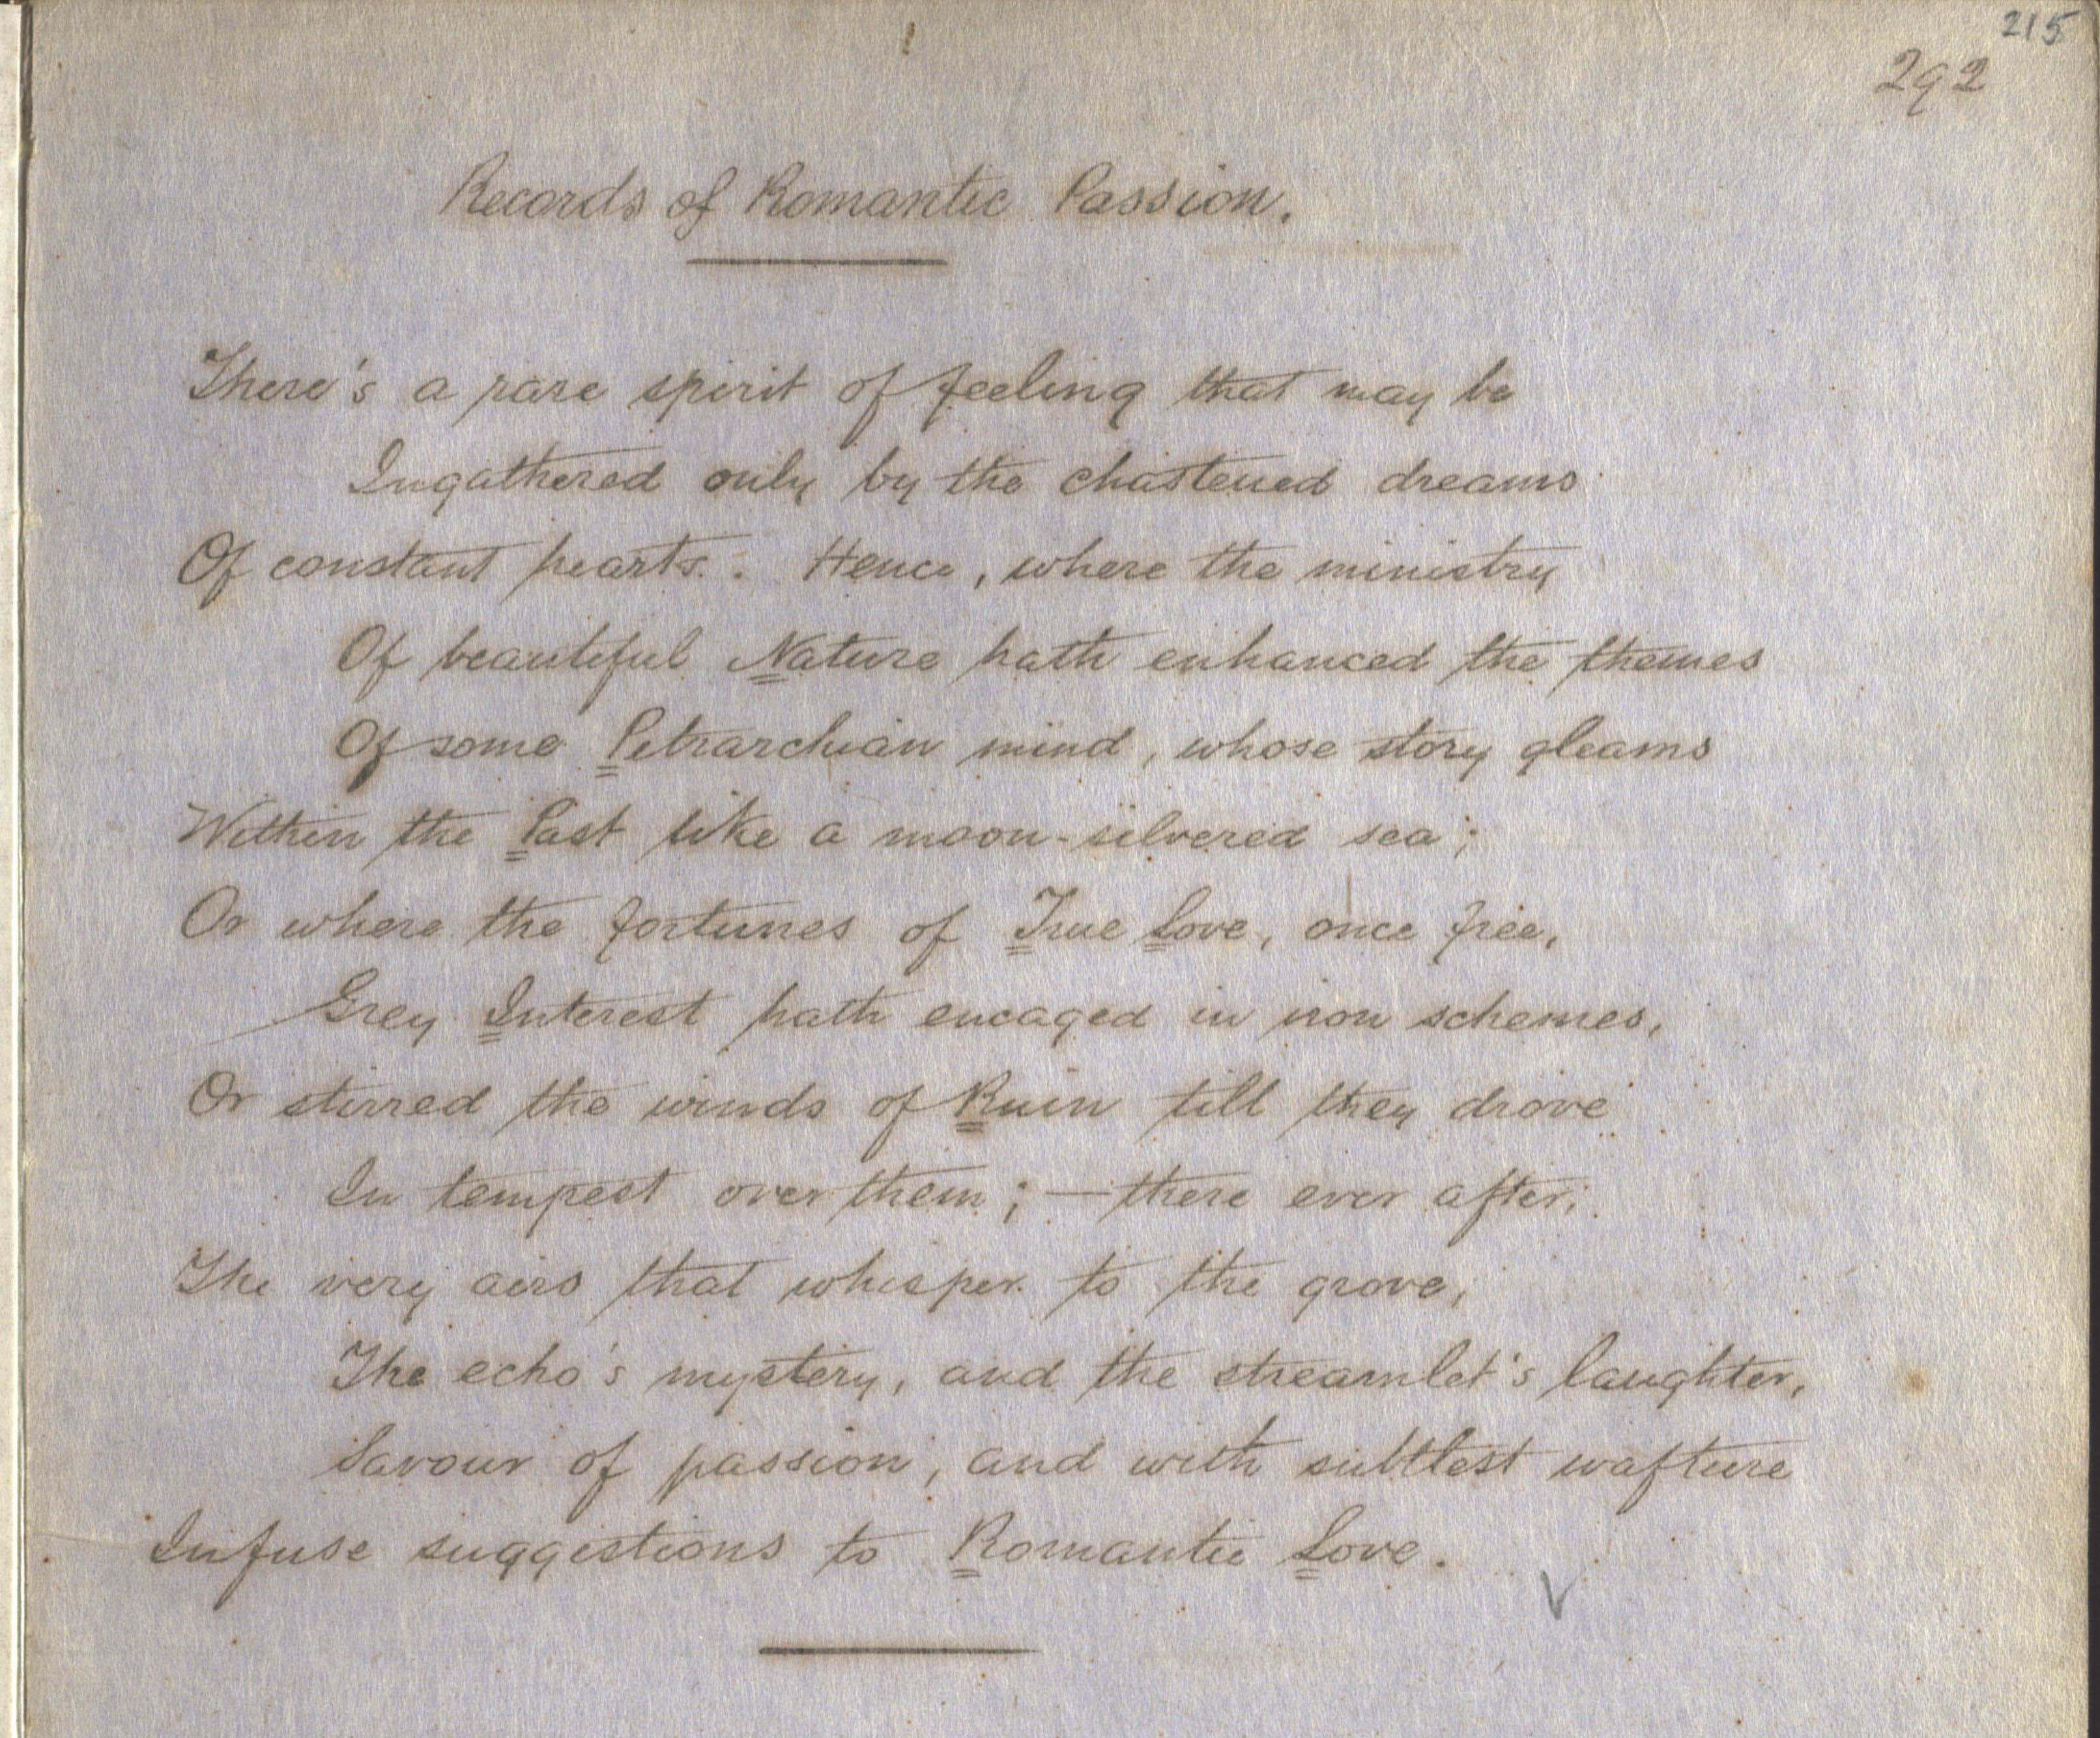 215
292
Records of Romantic Passion.
There's a rare spirit of feeling that may be
Ingathered only by the chastened dreams
Of constant hearts. Hence, where the ministry
Of beautiful Nature hath enhanced the themes
Of some Petrarchian mind, whose story gleams
Within the Past like a moon-silvered sea;
Or where the fortunes of True Love, once free,
Grey Interest hath encaged in iron schemes,
Or stirred the winds of Ruin till they drove
In tempest over them; — there ever after,
The very airs that whisper to the grove,
The echo's mystery, and the streamlet's laughter,
Savour of passion, and with subtlest wafture
Infuse suggestions to Romantic Love.